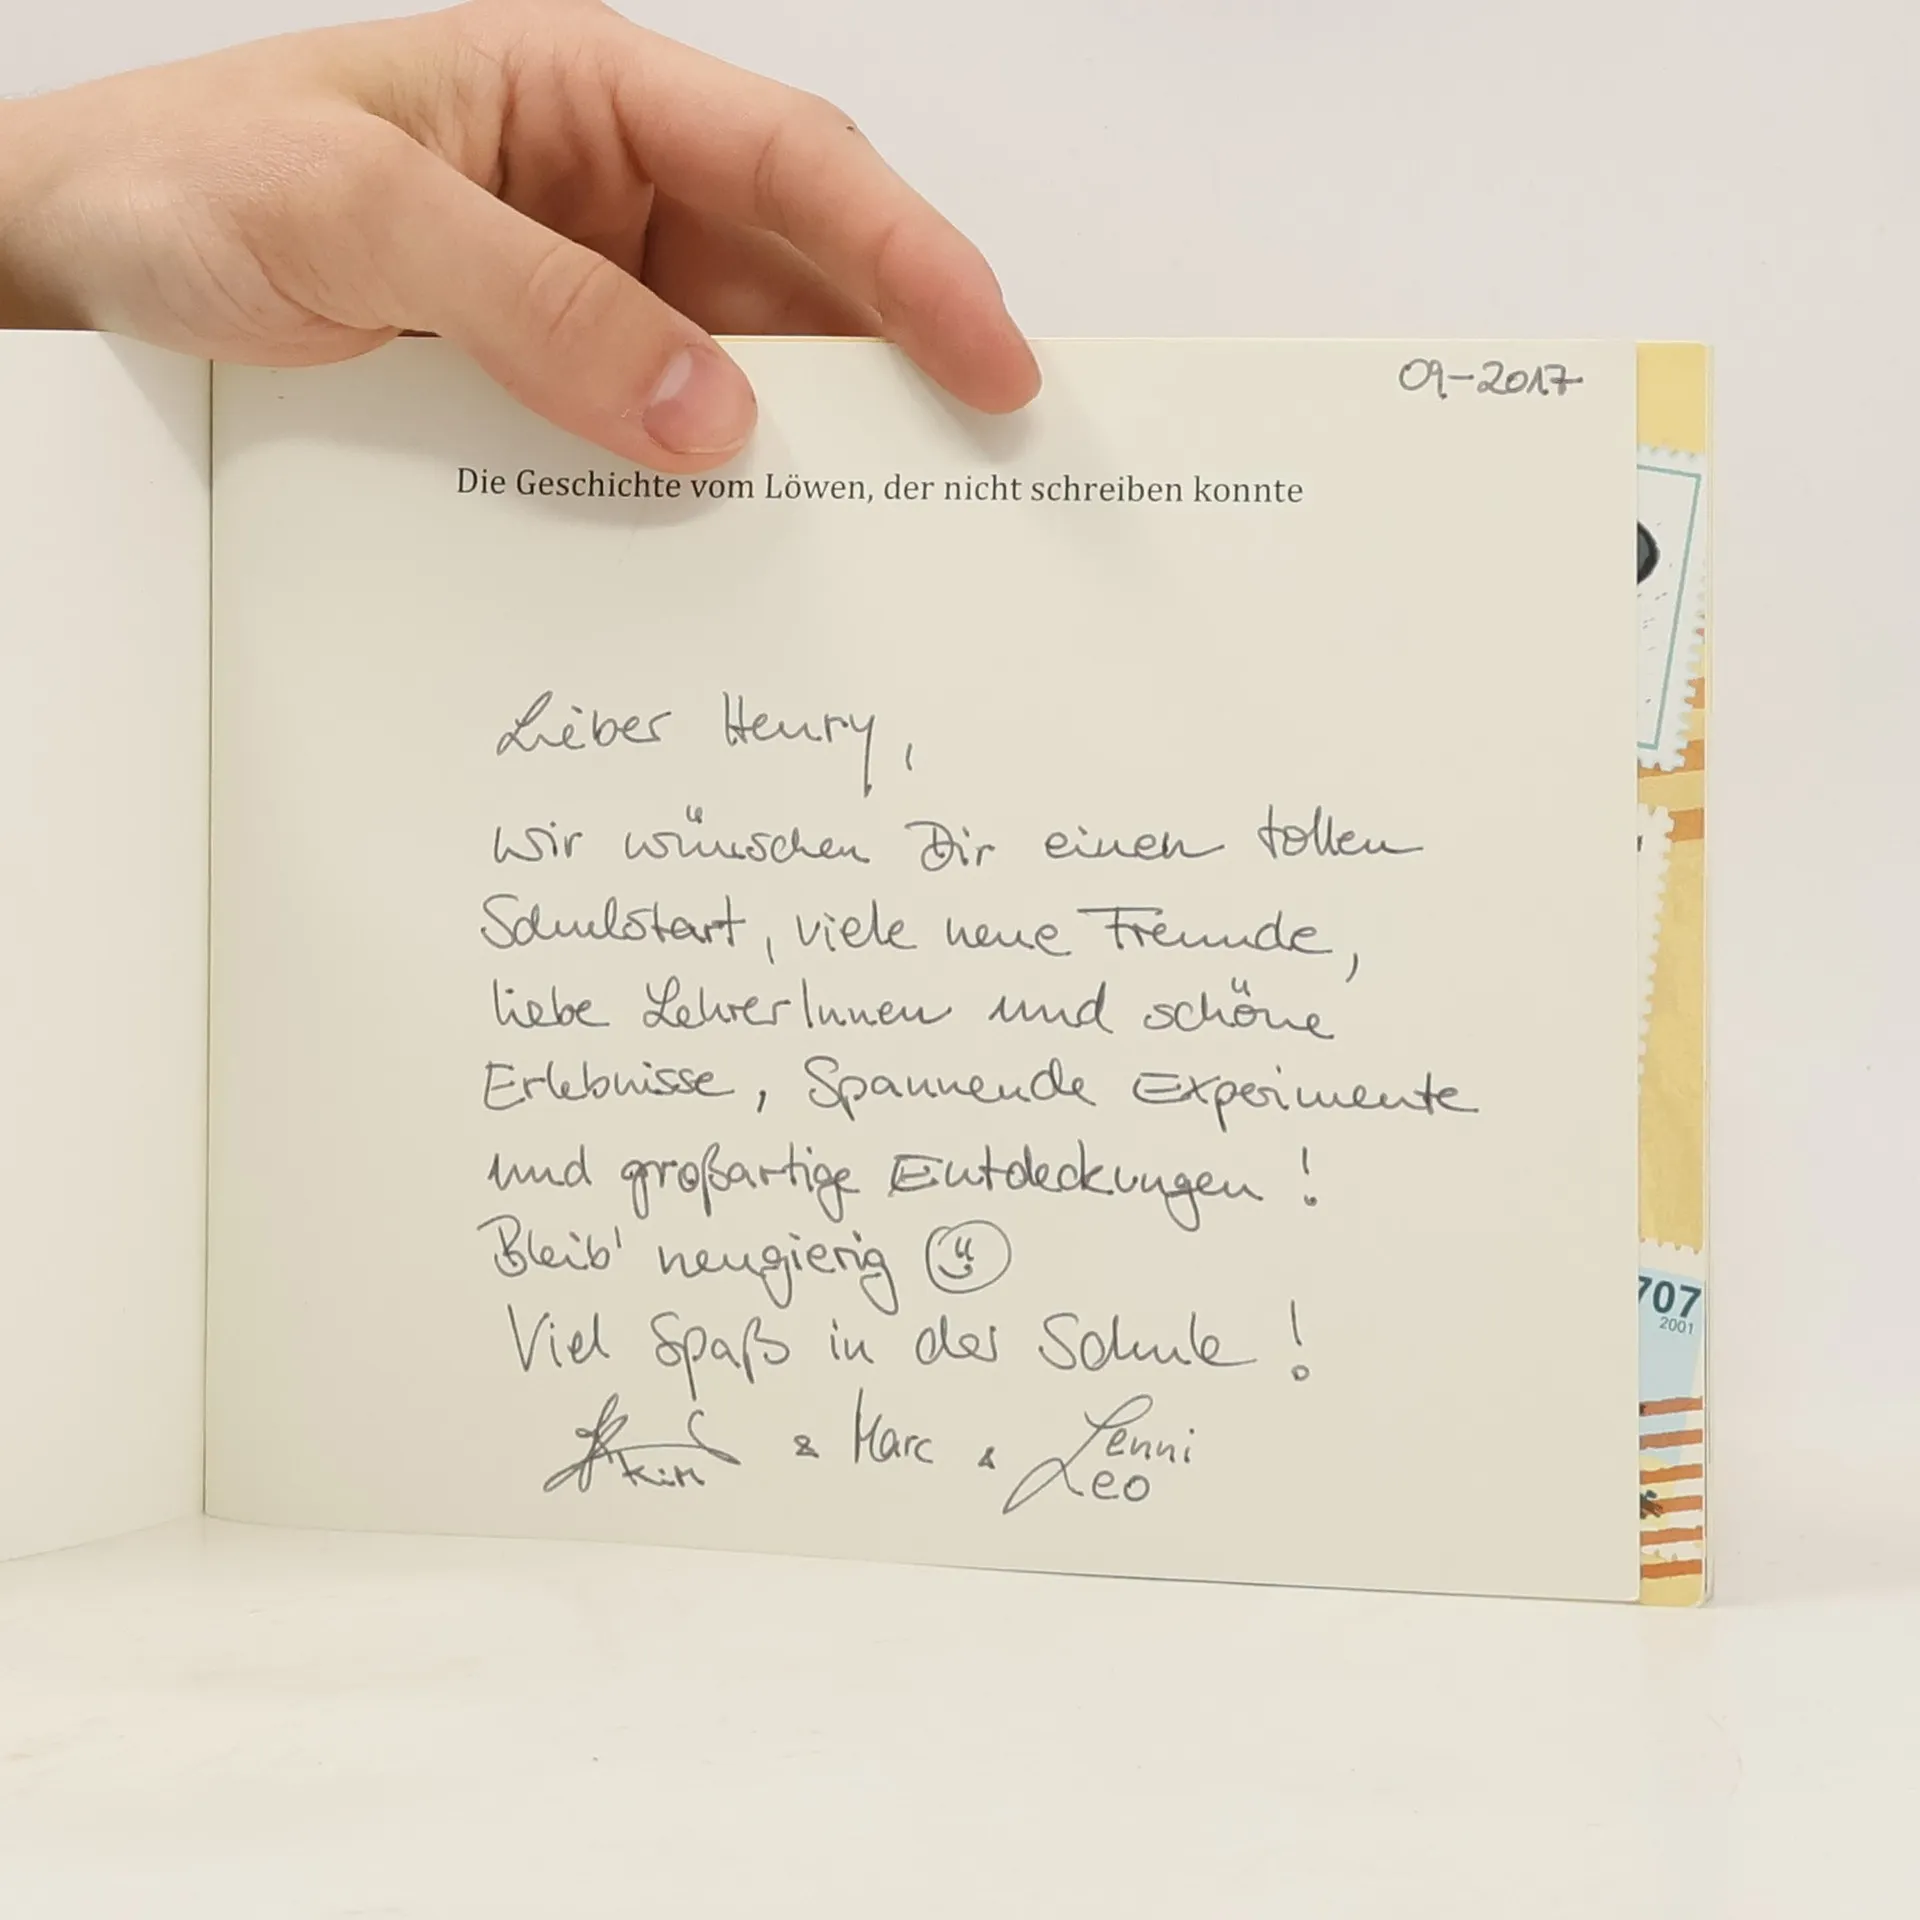 09-2017
Die Geschichte vom Löwen, der nicht schreiben konnte
Lieber Henry,
wir wünschen Dir einen tollen
Schulstart, viele neue Freunde,
liebe LehrerInnen und schöne
Erlebnisse, Spannende Experimente
und großartige Entdeckungen!
Bleib' neugierig
Viel Spaß in der Schule!
& Marc & Lenni
Leo
707
2001